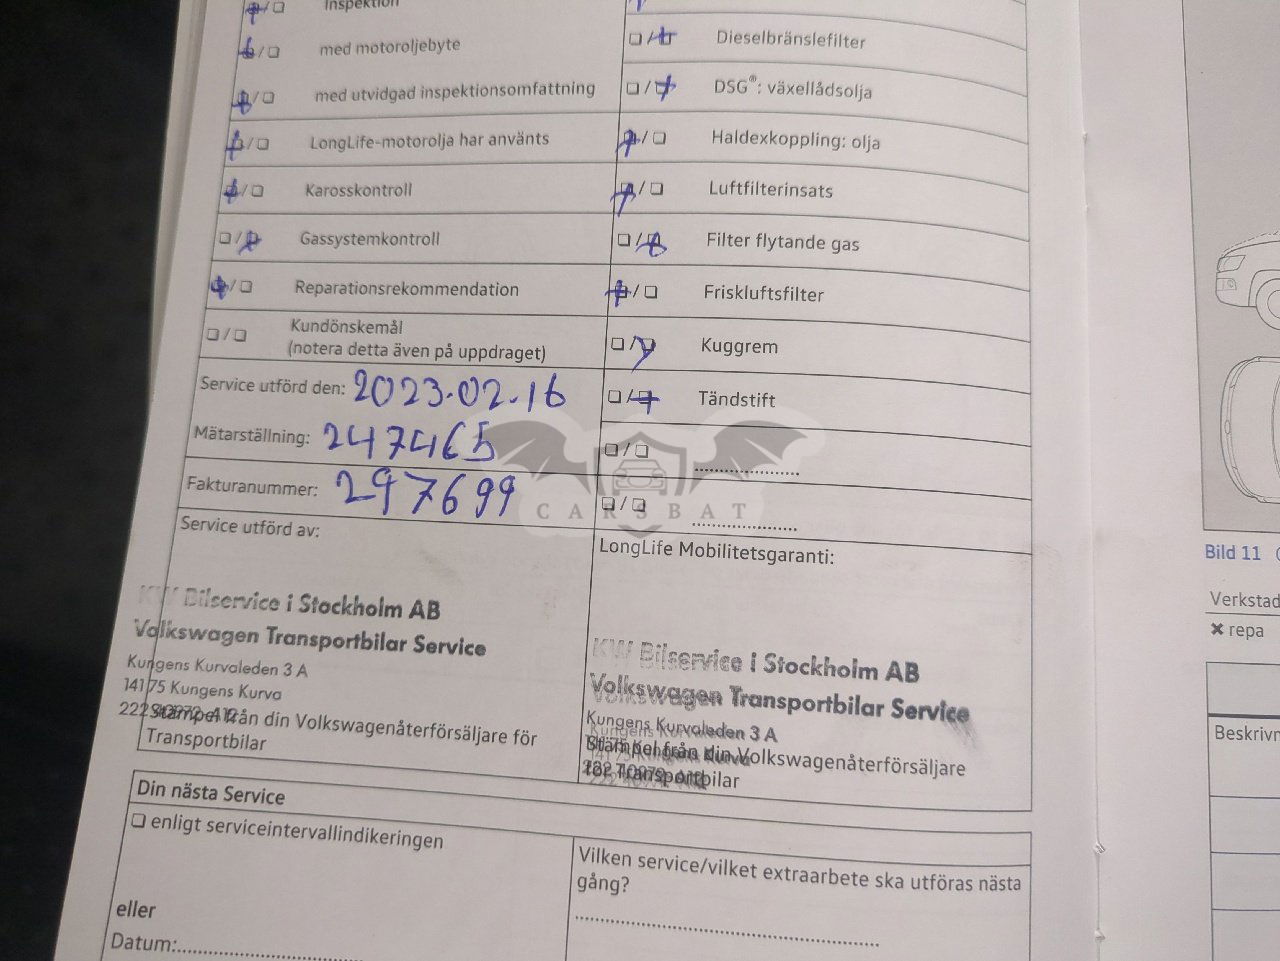 Inspektion
med motoroljebyte
med utvidgad inspektionsomfattning
LongLife-motorolja har använts
Karosskontroll
Gassystemkontroll
Reparationsrekommendation
Kundönskemål
(notera detta även på uppdraget)
Service utförd den: 2023.02.16
Mätarställning: 247465
Fakturanummer: 297699
Service utförd av:
KW Bilservice i Stockholm AB
Volkswagen Transportbilar Service
Kungens Kurvaleden 3 A
141 75 Kungens Kurva
Stämpel från din Volkswagenåterförsäljare för
Transportbilar
Dieselbränslefilter
DSG®: växellådsolja
Haldexkoppling: olja
Luftfilterinsats
Filter flytande gas
Friskluftsfilter
Kuggrem
Tändstift
CARSBAT
LongLife Mobilitetsgaranti:
KW Bilservice i Stockholm AB
Volkswagen Transportbilar Service
Kungens Kurvaleden 3 A
Stämpel från din Volkswagenåterförsäljare
för Transportbilar
Din nästa Service
enligt serviceintervallindikeringen
eller
Datum:
Vilken service/vilket extraarbete ska utföras nästa
gång?
Bild 11
Verkstad
repa
Beskrivn